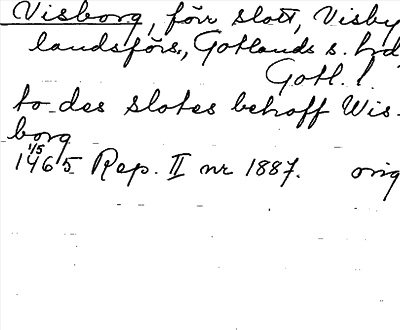 Visborg, förr slott, Visby
landsförs., Gotlands s. hd
Gotl. l.
to des slotes behoff Wis-
borg
1/5
1465 Rep. II nr 1887. orig